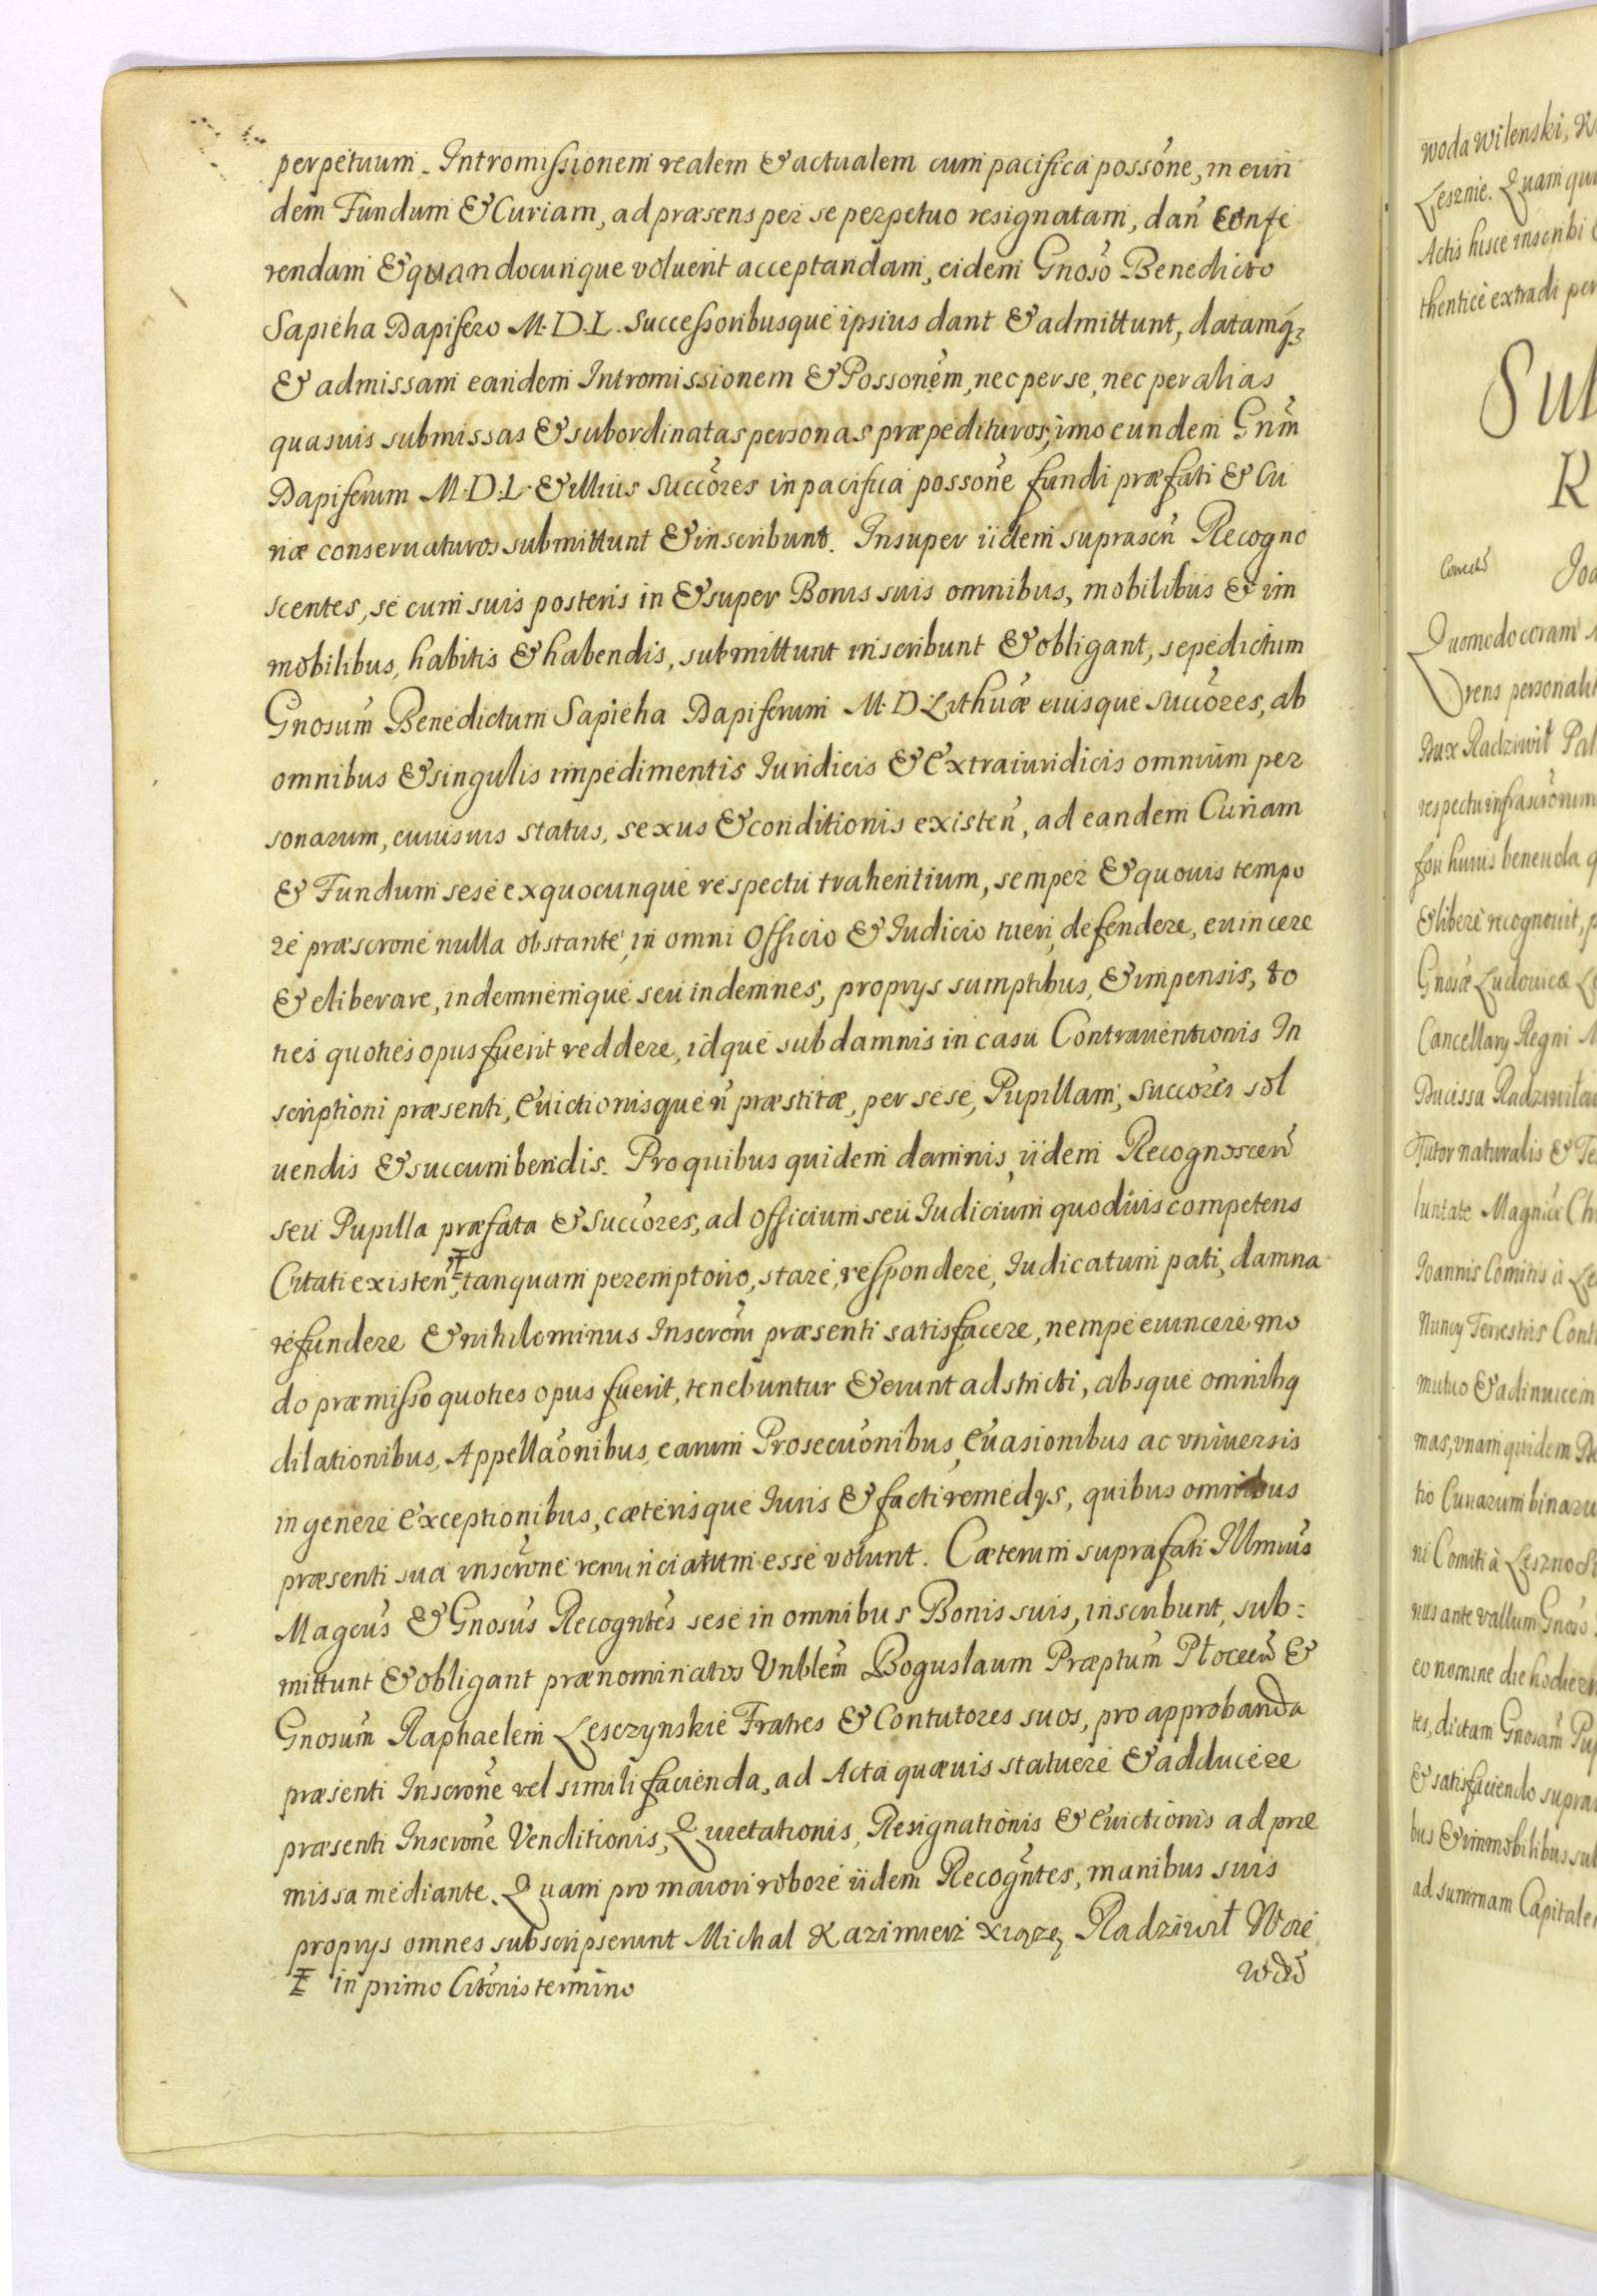 perpetuum. Intromissionem realem & actualem cum pacifica possōne, in eun
dem Fundum & Curiam, ad præsens per se perpetuo resignatam, dañ confe
rendam & quandocunque voluerit acceptandam, eidem Gnōso Benedicto
Sapieha Dapifero M. D. L. Successoribusque ipsius dant & admittunt, datamq;
& admissam eandem Intromissionem & Possonēm, nec per se, nec per alias
quasuis submissas & subordinatas personas præpedituros, imo eundem Gnm̄
Dapiferum M. D. L. & illius succōres in pacifica possonē fundi præfati & Cu
riæ conseruaturos submittunt & inscribunt. Insuper iidem suprascr̄ Recogno
scentes, se cum suis posteris in & super Bonis suis omnibus, mobilibus & im
mobilibus, habitis & habendis, submittunt inscribunt & obligant, sepedictum
Gnosum̄ Benedictum Sapieha Dapiferum M. D Lithūæ eiusque succōres, ab
omnibus & singulis impedimentis Iuridicis & Extraiuridicis omnium per
sonarum, cuiusuis status, sexus & conditionis existen̄, ad eandem Curiam
& Fundum sese ex quocunque respectu trahentium, semper & quouis tempo
re præscronē nulla obstante, in omni Officio & Iudicio tueri, defendere, euincere
& eliberare, indemnemque seu indemnes, proprys sumptibus, & impensis, to
ties quoties opus fuerit reddere, idque sub damnis in casu Contrauentionis In
scriptioni præsenti, Euictionisque n̄ præstitæ, per sese, Pupillam, succōres sol
uendis & succumbendis. Pro quibus quidem damnis iidem Recognoscen̄
seu Pupilla præfata & succōres, ad Officium seu Iudicium quoduis competens
Citati existen̄, ‡ tanquam peremptorio, stare, respondere, Iudicatum pati, damna
refundere & nihilominus Inscrōni præsenti satisfacere, nempe euincere mo
do præmisso quoties opus fuerit, tenebuntur & erunt adstricti, absque omnibq
dilationibus, Appellaōnibus, earum Prosecuōnibus, Euasionibus ac vniuersis
in genere Exceptionibus, cæterisque Iuris & facti remedys, quibus omnibus
præsenti sua inscrōne renunciatum esse volunt. Cæterum suprafati Illmūs
Magcūs & Gnosūs Recogntēs sese in omnibus Bonis suis, inscribunt, sub:
mittunt & obligant prænominatos Vnblēm Boguslaum Præptum̄ Płocen̄ &
Gnosum̄ Raphaelem Lesczynskie Fratres & Contutores suos, pro approbanda
præsenti Inscronē vel simili facienda, ad Acta quæuis statuere & adducere
præsenti Inscronē Venditionis, Quietationis, Resignationis & Euictionis ad præ
missa mediante. Quam pro maiori robore iidem Recogn̄tes, manibus suis
proprys omnes subscripserunt Michal Kazimierz xiąze Radziwił Woie
‡ in primo Citōnis termino
woda Wilenski,
Lesznie. Quam
Actis hisce inscribi
thentice extradi per
Sul
R
Ioa
Quomodo coram
rens personalit
Dux Radziwił Pal
respectu infrascrōnum
fori huius beneuola
& libere recognouit,
Gnosæ Ludouicæ
Cancellary Regni
Ducissa
Tutor naturalis & Te
luntate
Ioannis Comitis à
Nuncy Terrestris Cont
mutuo & adinuicem
mas, vnam quidem
tio Curiarum binaru
ni Comiti à Leszno
nus ante vallum Gnoso
eo nomine die hodier
tes, dictam Gnosam̄ Pup
& satisfaciendo supra
bus & immobilibus sul
ad summam Capitale